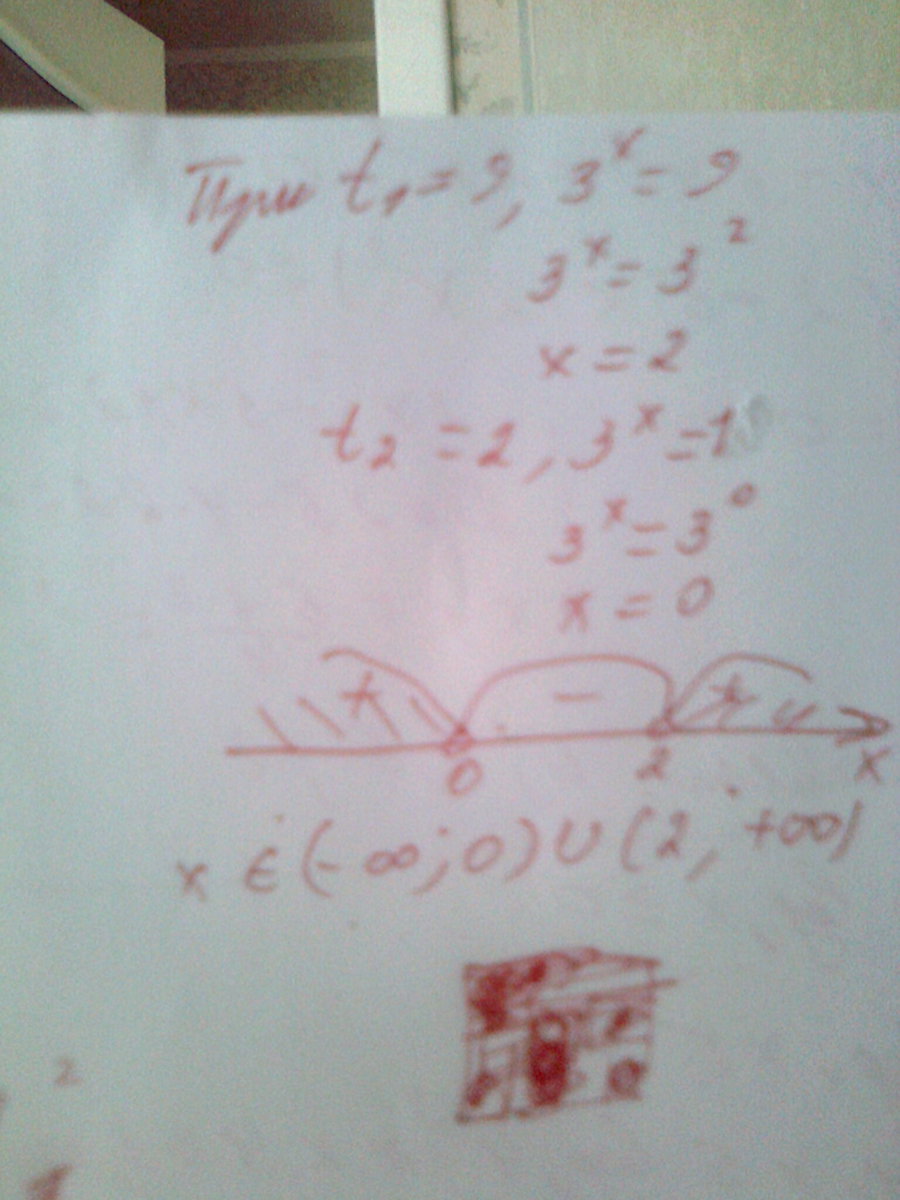 При t₁ = 9, 3ˣ = 9
3ˣ = 3²
x = 2
t₂ = 1, 3ˣ = 1
3ˣ = 3⁰
x = 0
+ − +
0 2 x
x ∈ (-∞; 0) ∪ (2; +∞)
2